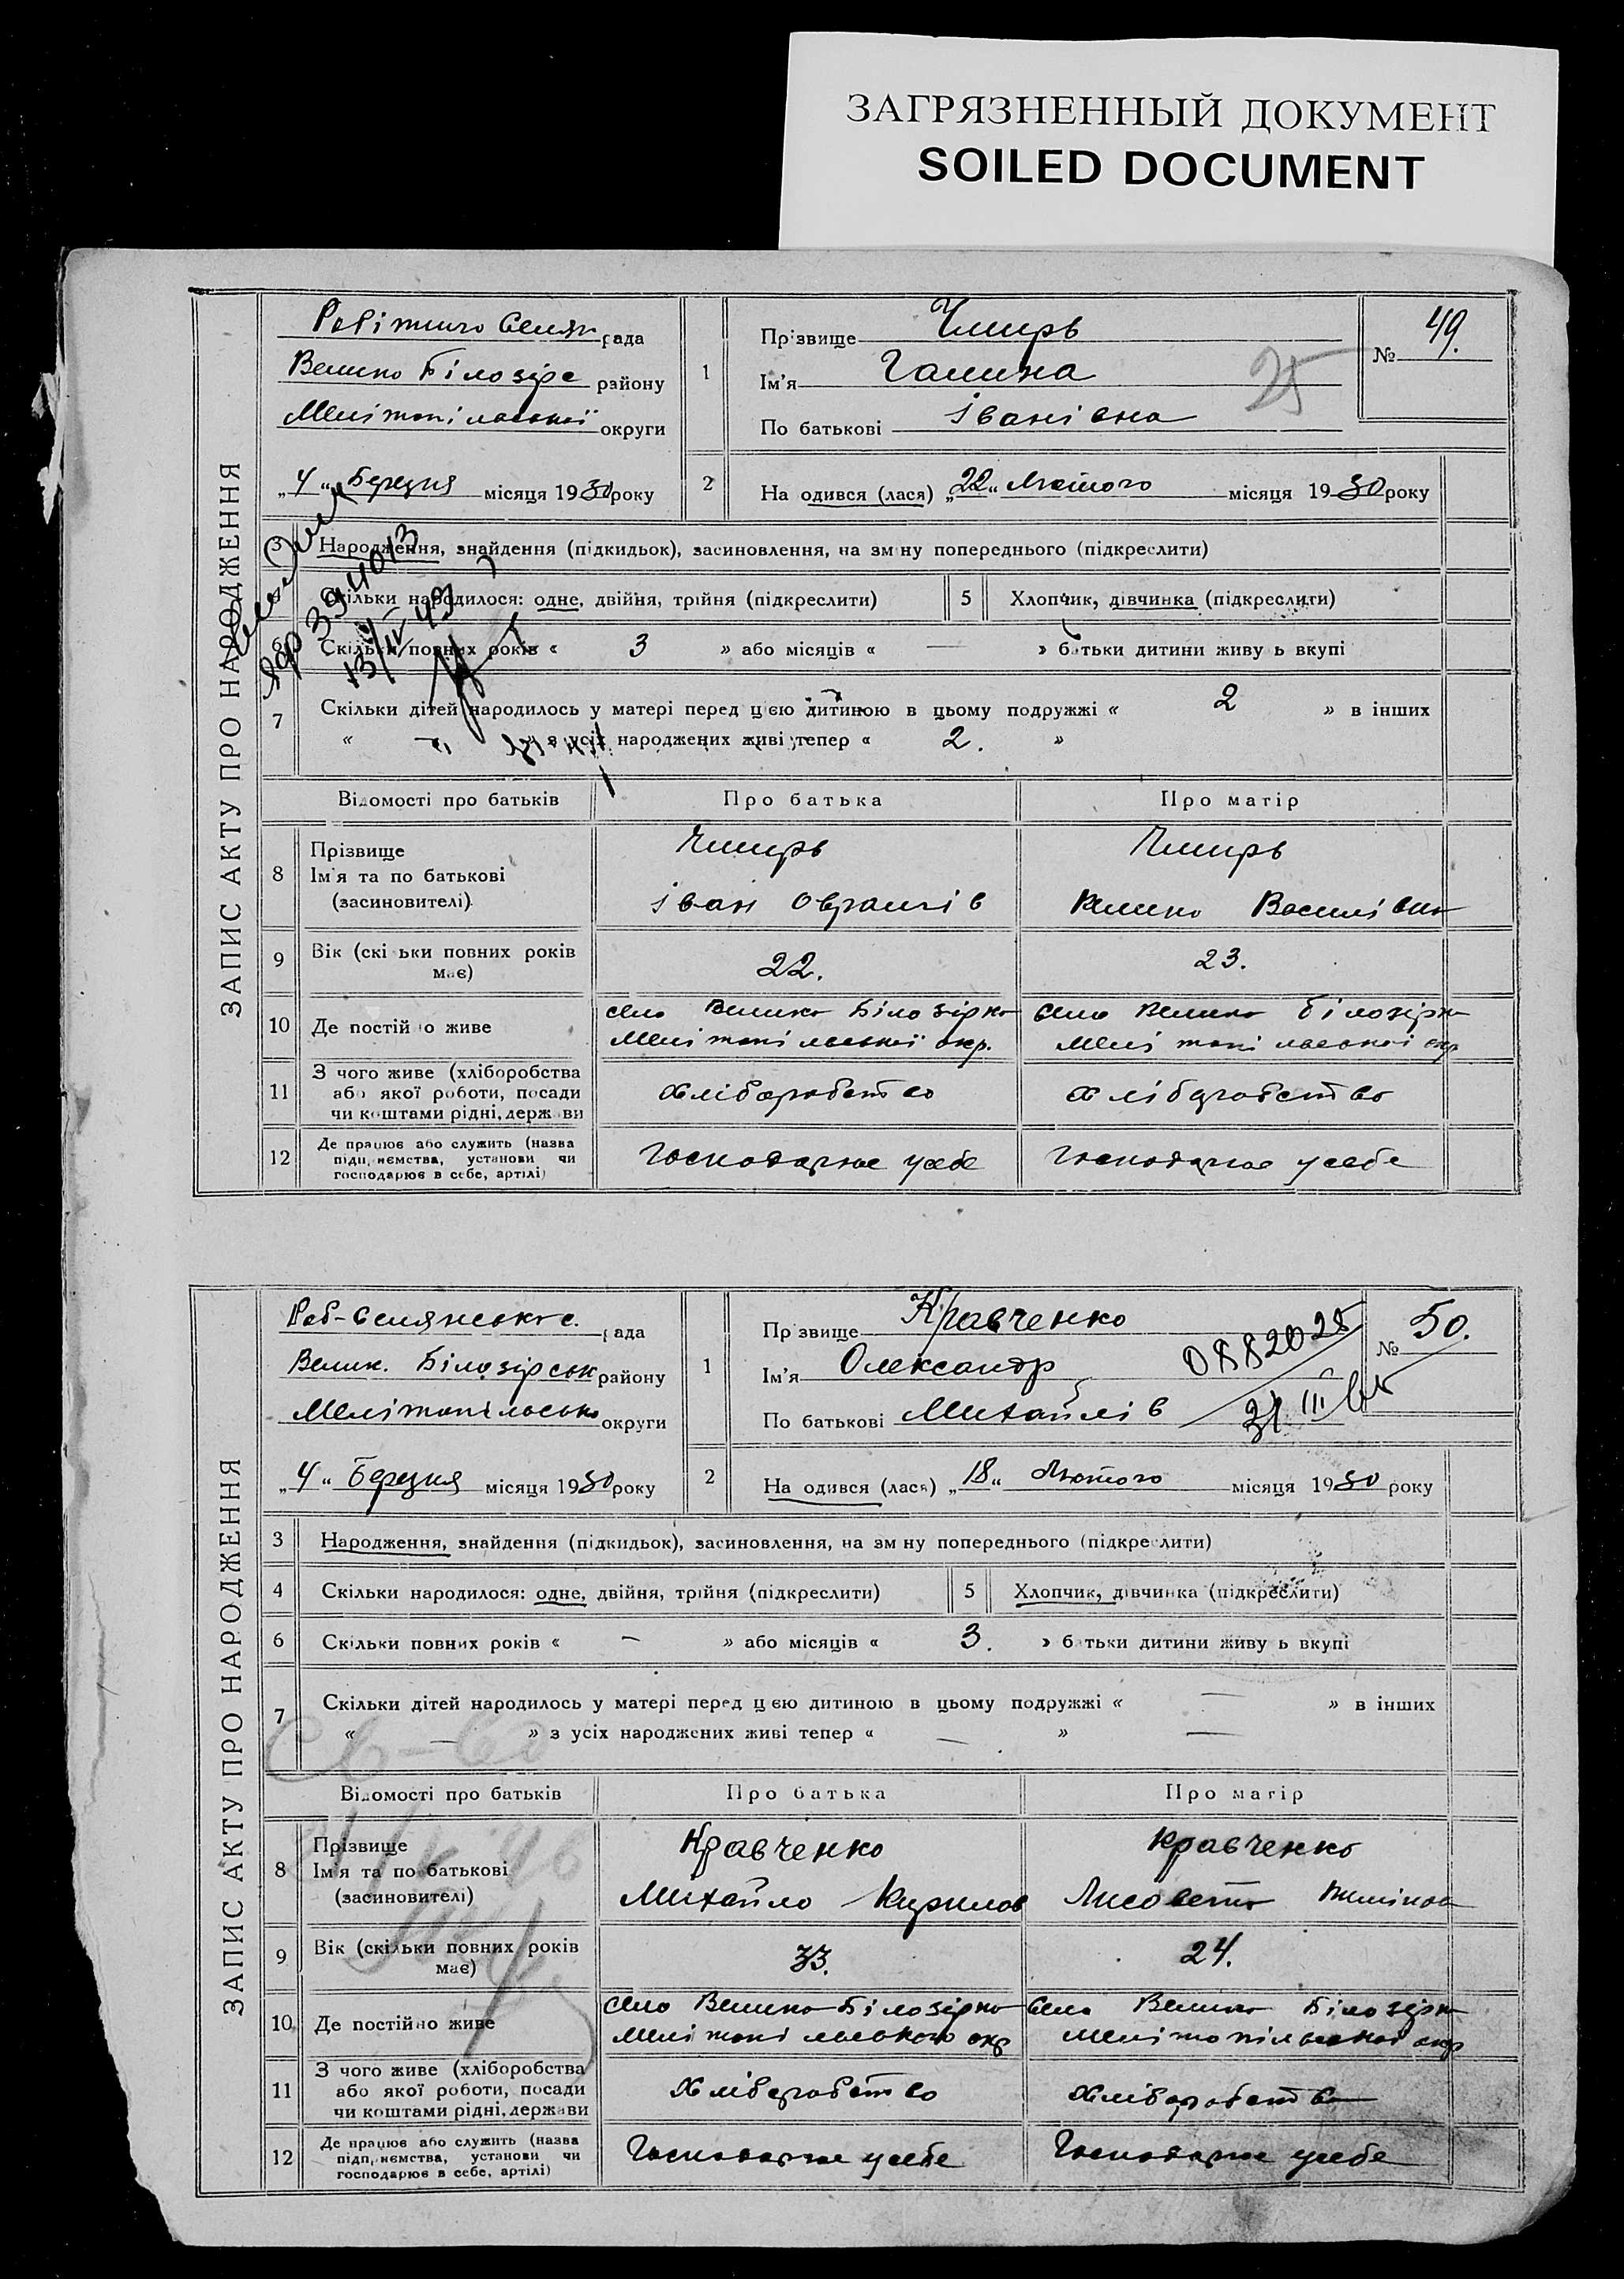 ЗАГРЯЗНЕННЫЙ ДОКУМЕНТ
SOILED DOCUMENT
ЗАПИС АКТУ ПРО НАРОДЖЕННЯ
рада
Велико Білозірс району
Мелітопільської округи
„4“ Березня місяця 1930 року
1
Прізвище Чмирь
Ім'я Галина
По батькові Іванівна
25
№ 49.
2 На одився (лася) „22“ Лютого місяця 1930 року
3 Народження, знайдення (підкидьок), засиновлення, на зм ну попереднього (підкреслити)
Скільки народилося: одне, двійня, трійня (підкреслити)
5 Хлопчик, дівчинка (підкреслити)
394013
13/IV 43
6 Скільки повних років « 3 » або місяців « — » батьки дитини живу ь вкупі
7 Скільки дітей народилось у матері перед цією дитиною в цьому подружжі « 2 » в інших
« з усіх народжених живі тепер « 2. »
Відомості про батьків
Про батька
Про матір
8 Прізвище
Ім'я та по батькові
(засиновителі)
Чмирь
Іван
Чмирь
Василівна
9 Вік (скі ьки повних років
має)
22.
23.
10 Де постій о живе
село Велика Білозірка
Мелітопільської окр.
село Велика Білозірка
Мелітопільської окр
11 З чого живе (хліборобства
або якої роботи, посади
чи коштами рідні, держ ви
хліборобство
хліборобство
12 Де працює або служить (назва
підп, иємства, установи чи
господарює в себе, артілі)
Господарює усебе
Господарює усебе
ЗАПИС АКТУ ПРО НАРОДЖЕННЯ
Роб-Селянська рада
Велик. Білозірськ району
Мелітопільсько округи
„4“ Березня місяця 1930 року
1
Пр звище Кравченко
Ім'я Олександр
По батькові Михайлів
0882025
31 III
№ 50.
2 На одився (лася) „18“ Лютого місяця 1930 року
3 Народження, знайдення (підкидьок), засиновлення, на зм ну попереднього (підкреслити)
4 Скільки народилося: одне, двійня, трійня (підкреслити)
5 Хлопчик, дівчинка (підкреслити)
6 Скільки повних років « — » або місяців « 3. » батьки дитини живу ь вкупі
7 Скільки дітей народилось у матері перед цією дитиною в цьому подружжі « — » в інших
« — » з усіх народжених живі тепер « — » —
Відомості про батьків
Про батька
Про матір
8 Прізвище
Ім'я та по батькові
(засиновителі)
Кравченко
Михайло Кирилов
Кравченко
Лисовета
9 Вік (скільки повних років
має)
33.
24.
10 Де постійно живе
село Велика Білозірка
Мелітопільського окр
село Велика Білозірка
Мелітопільської окр
11 З чого живе (хліборобства
або якої роботи, посади
чи коштами рідні, держави
хліборобство
хліборобство
12 Де працює або служить (назва
підп, иємства, установи чи
господарює в себе, артілі)
Господарює усебе
Господарює усебе